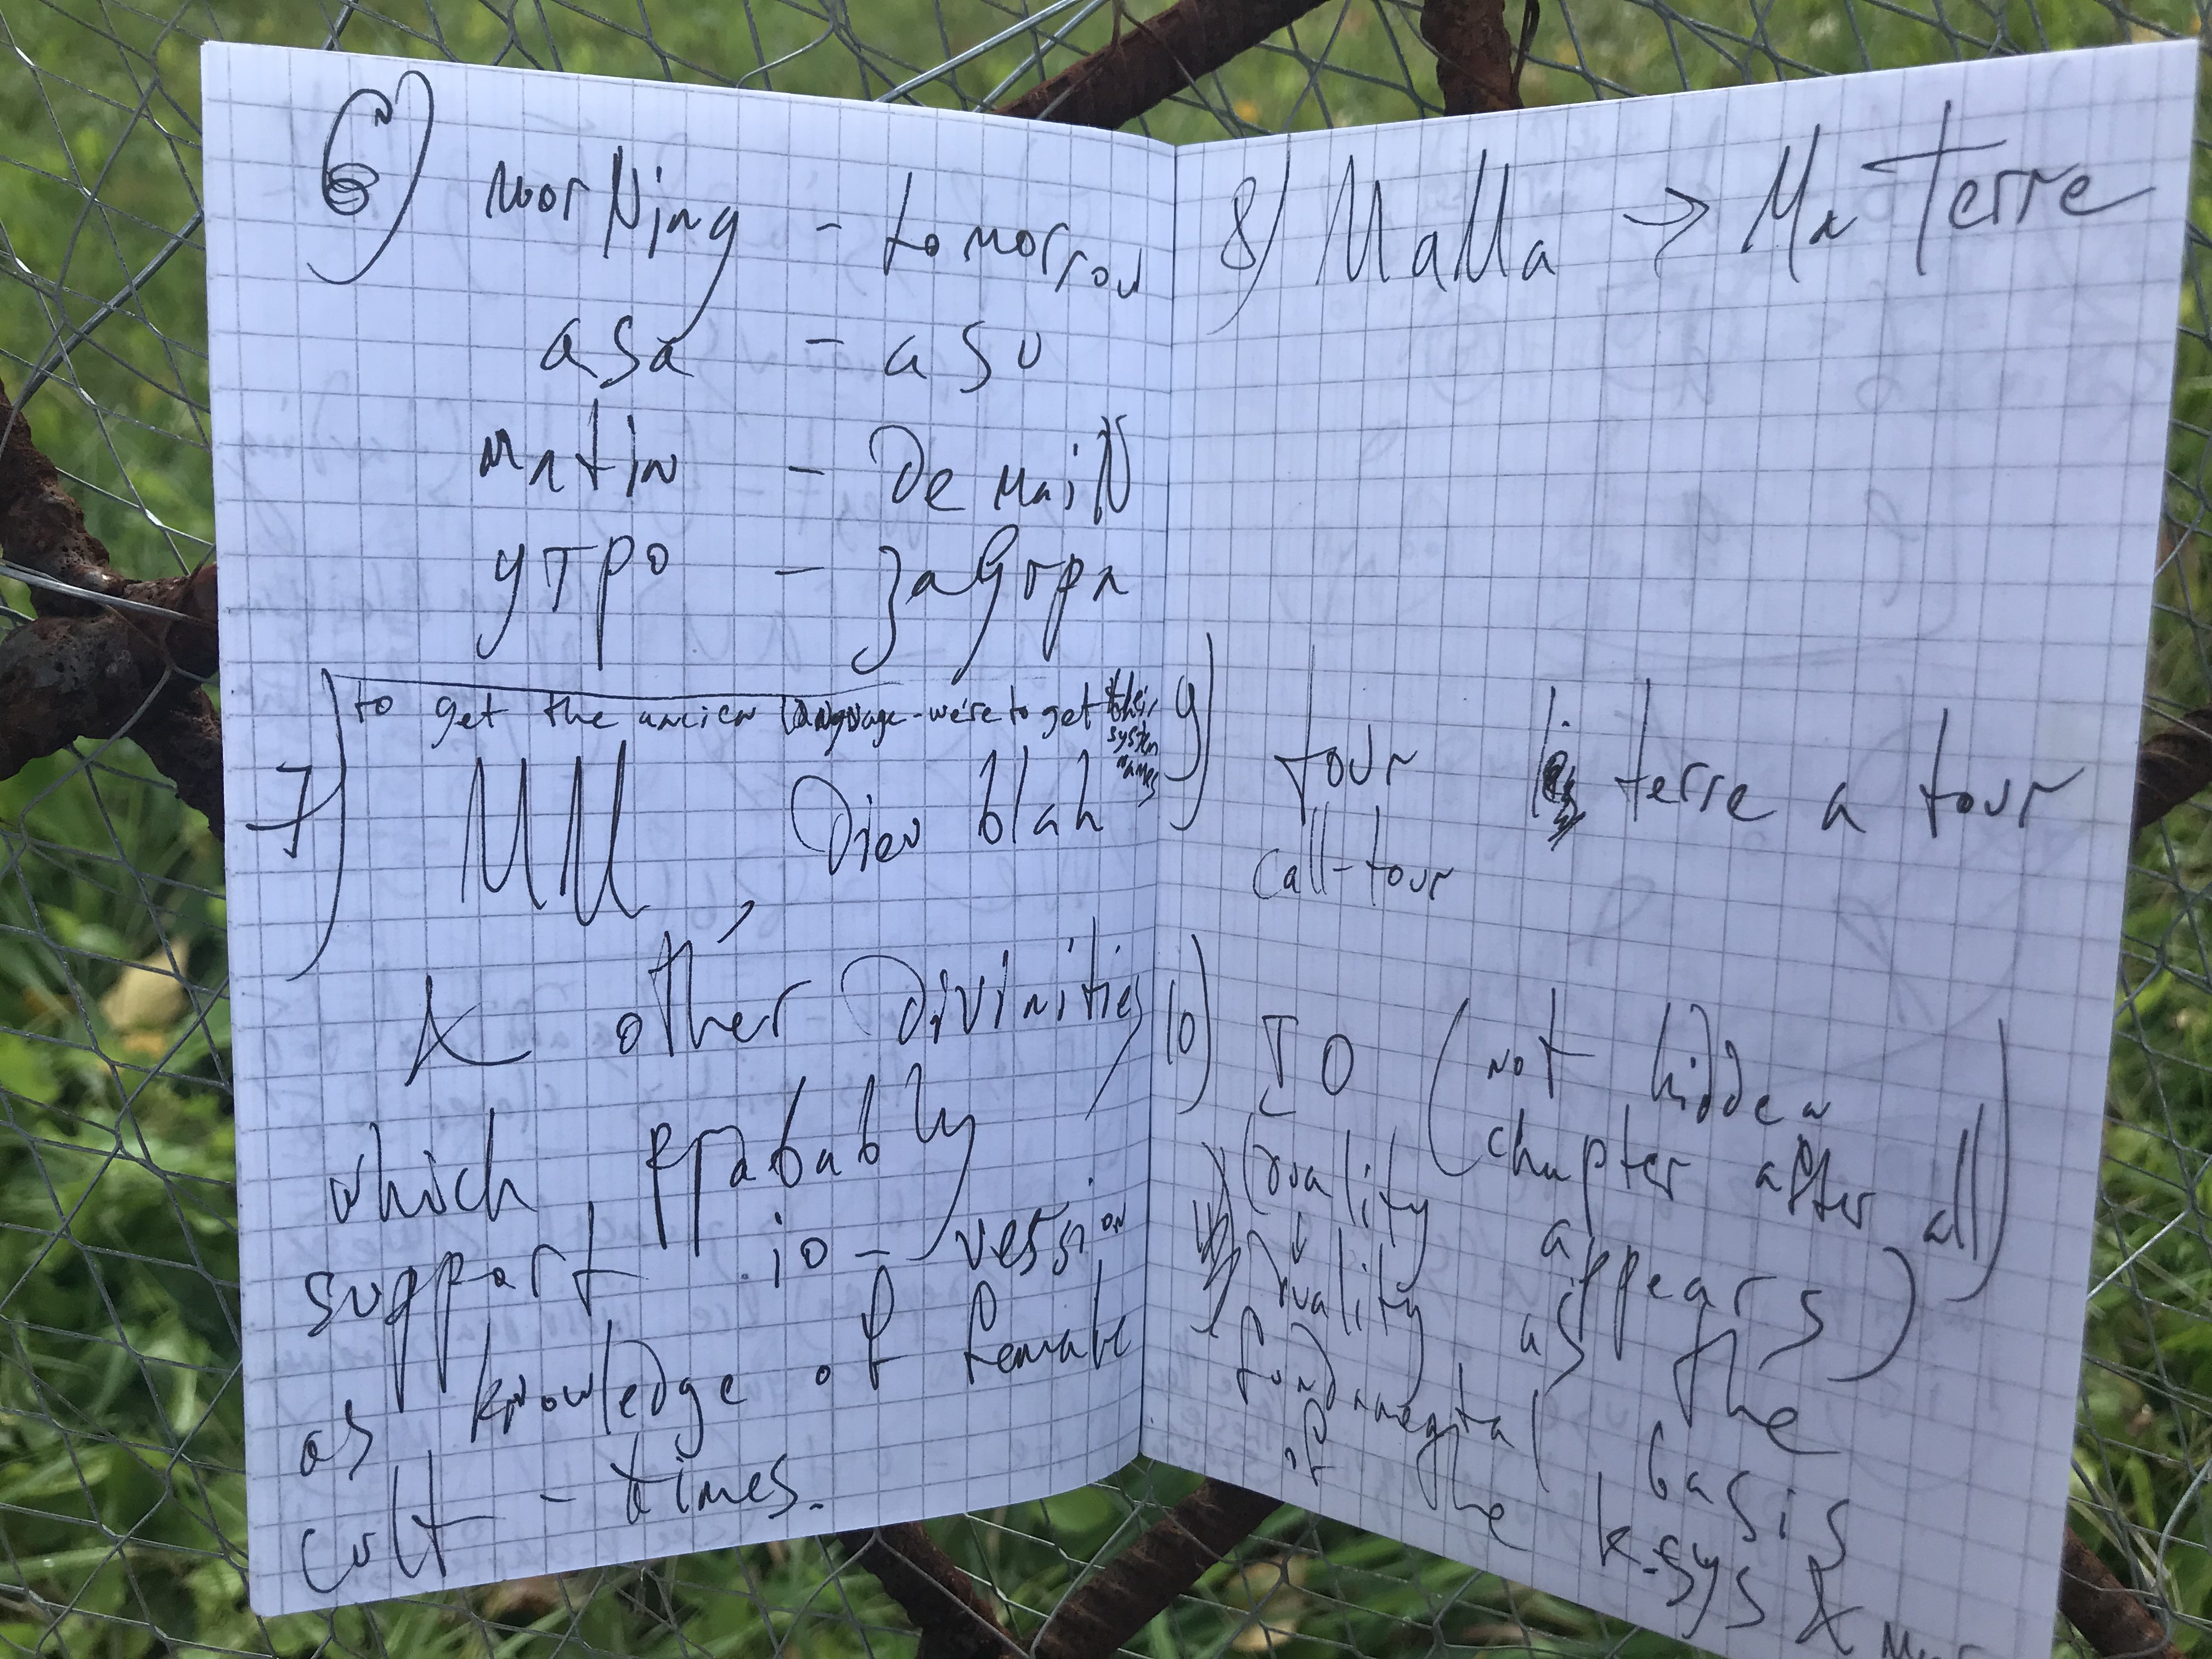 6) morNing - tomorrow
asa - asu
matin - DemaiN
утро - завтра
7) to get the ancien language - we're to get their system names
MM, Dieu blah
& other Divinities,
which prabably
support io-version
as knowledge of female
cult-times.
8) MaMa → Ma Terre
9) tour la terre a tour
call-tour
10) IO (not hidden
chapter after all)
(Duality appears)
↓
Duality as the
fundamental basis
of the k-sys &